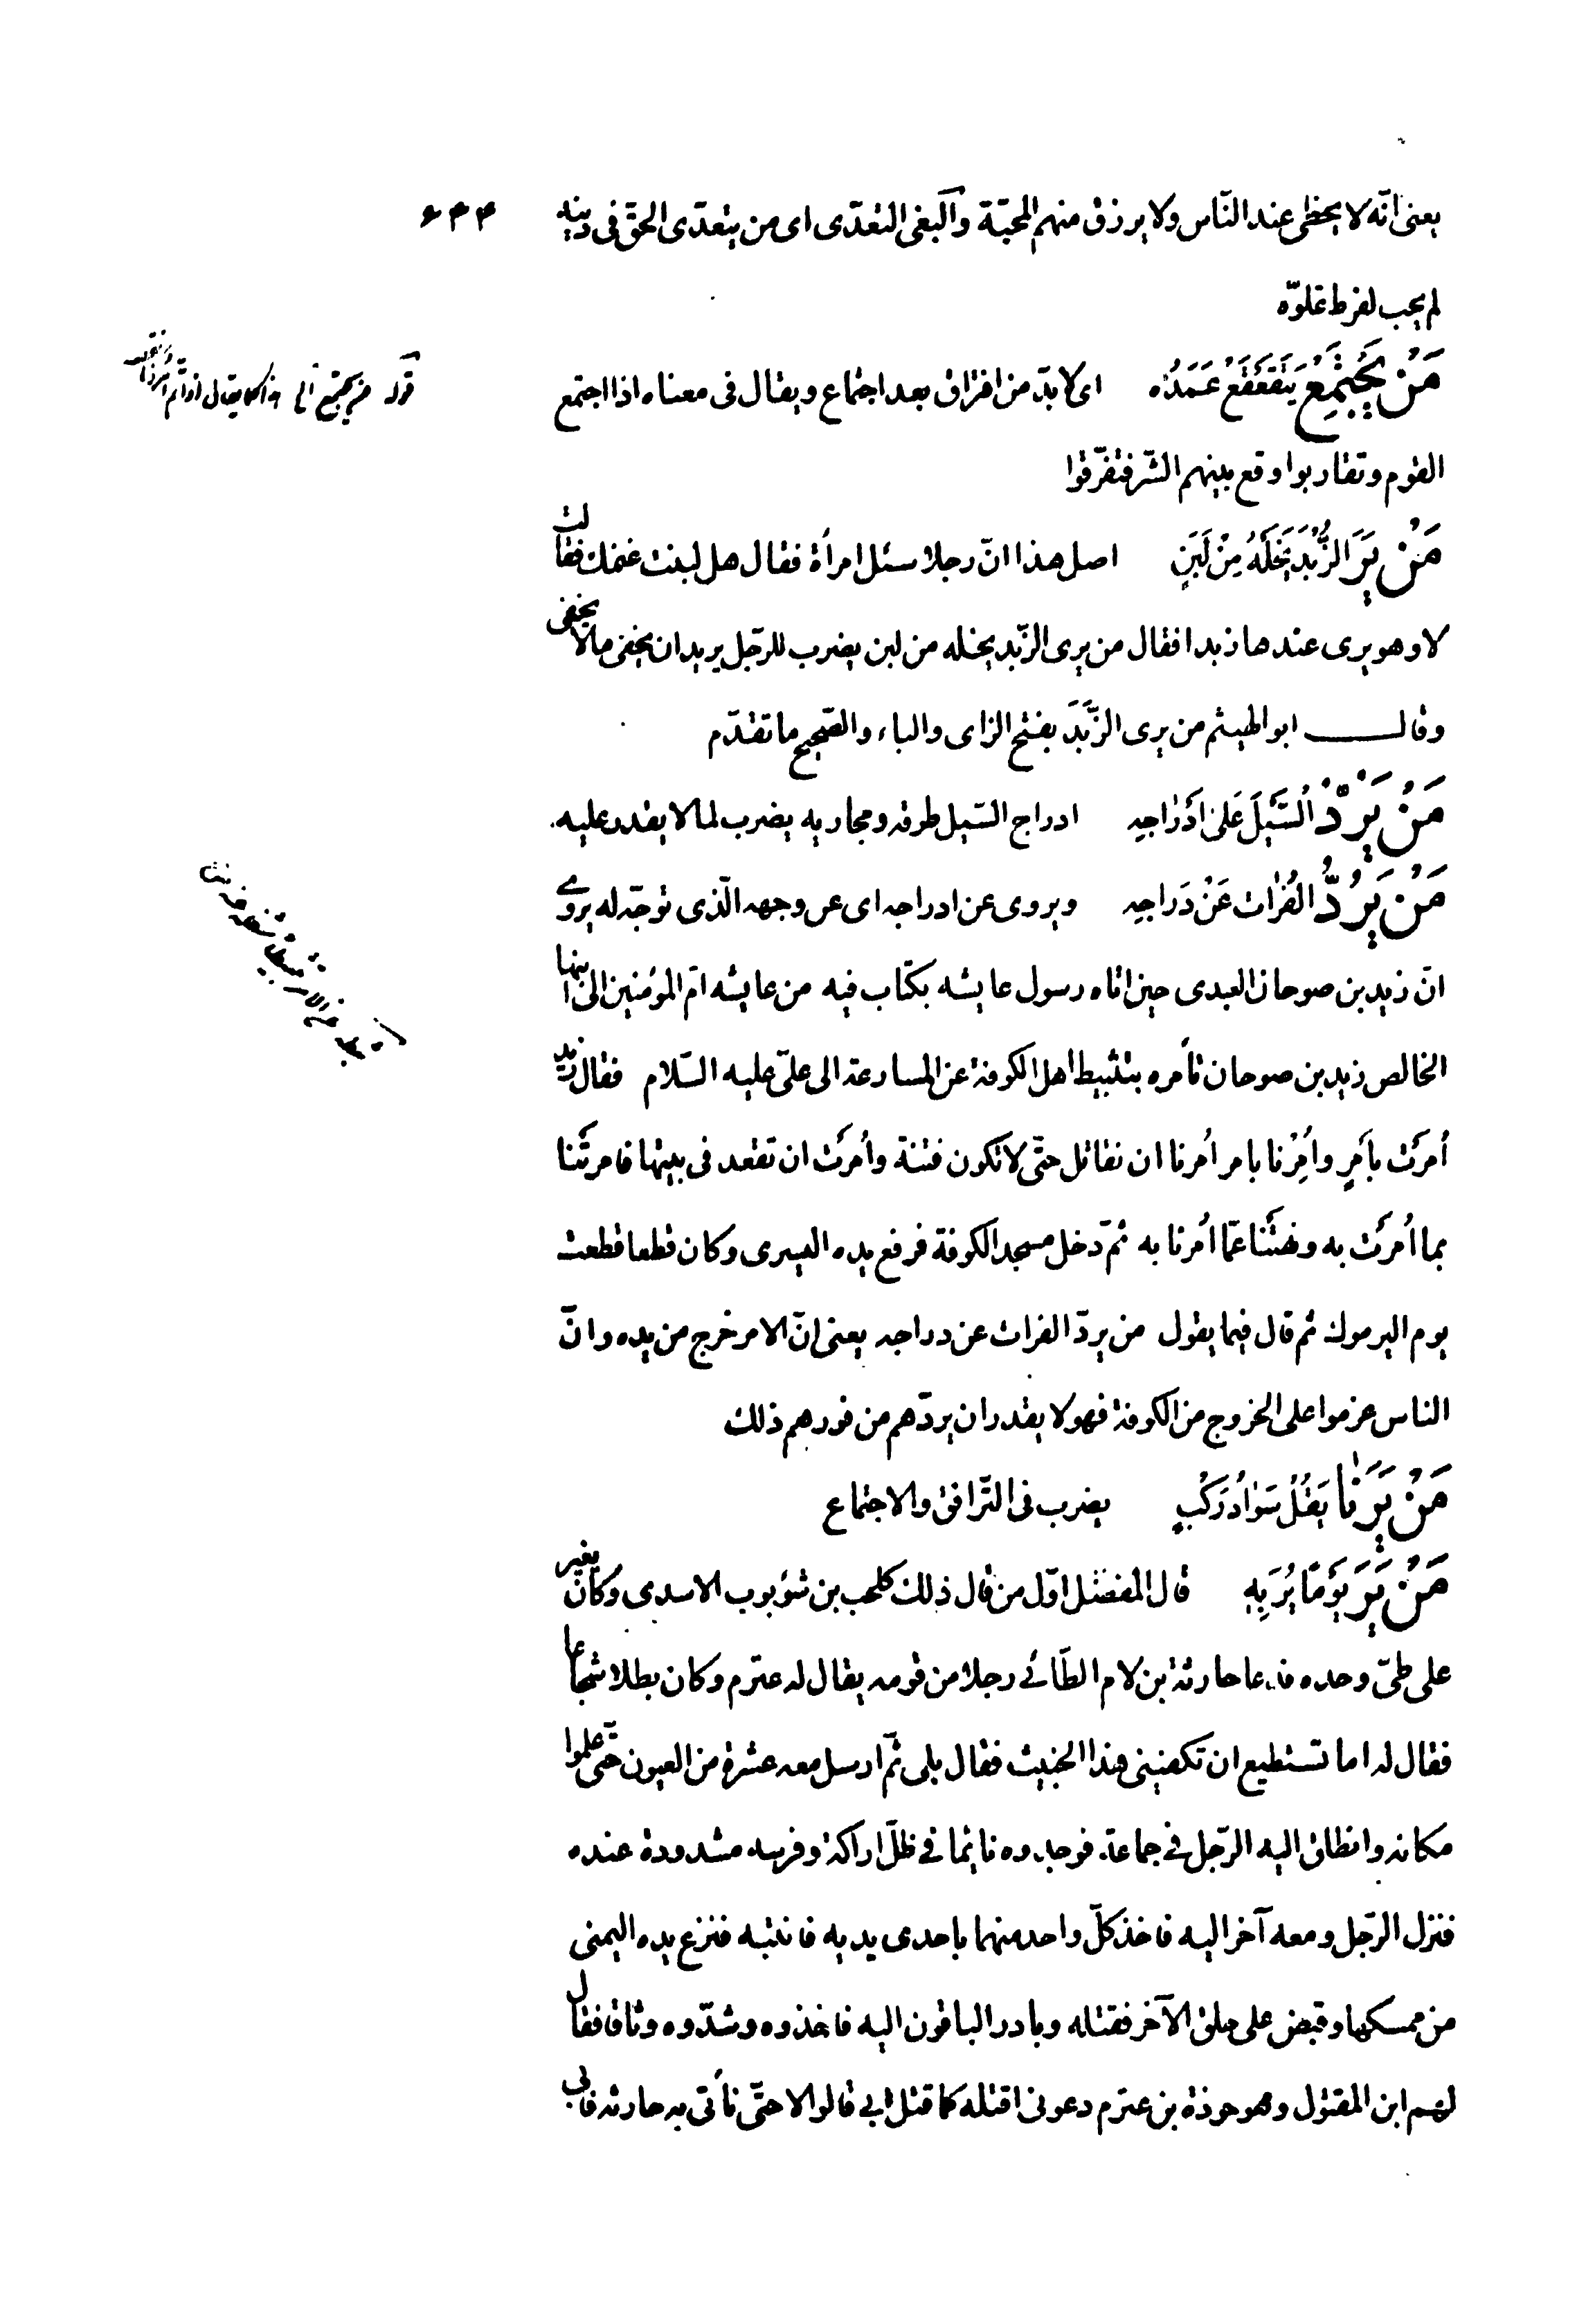 ٦٣٣
يعنى انّه لا يحظى عند النّاس ولا يرزق منهم المحبّة والبغى التعدّى اى من يتعدّى الحقّ فى دينه
لم يحب لفرط غلوّه
مَنْ يَجْتَمِعْ يَتَقَعْقَعْ عَمَدُه اى لا بدّ من افتراق بعد اجتماع ويقال فى معناه اذا اجتمع
قوله من يجتمع الى كما يقال اذا تم
القوم وتقاربوا وقع بينهم الشّر فتفرّقوا
مَنْ يَرَ الزُّبْدَ يَخَلْهُ مِنْ لَبَنٍ اصل هذا انّ رجلا سئل امرأة فقال هل لبنت غنمك فقالت
لا وهو يرى عندها زبدا فقال من يرى الزّبد يخله من لبن يضرب للرّجل يريد ان يخفى مالا يخفى
وقال ابو الهيثم من يرى الزَّبَدَ بفتح الزاى والباء والصّحيح ما تقدّم
مَنْ يَرُدُّ السَّيْلَ عَلىٰ اَدْرٰاجِهِ ادراج السّيل طرقه ومجاريه يضرب لما لا يقدر عليه.
مَنْ يَرُدُّ الفُرٰاتَ عَنْ دَراجِهِ ويروى عن ادراجه اى عن وجهه الّذى توجّه له يروى
انّ زيد بن صوحان العبدى حين اتاه رسول عايشه بكتاب فيه من عايشه امّ المؤمنين الى ابنها
الخالص زيد بن صوحان تأمره بتثبيط اهل الكوفة عن المسارعة الى علىّ عليه السّلام فقال زيد
أمرَت بأَمرٍ وأُمِرْنا بامر أُمرنا ان نقاتل حتّى لا تكون فتنة وأُمرَت ان تقعد فى بيتها فامرتَنا
بما أُمرَت به ونهتَنا عمّا أُمرنا به ثمّ دخل مسجد الكوفة فرفع يده اليسرى وكان قطعا قطعت
يوم اليرموك ثم قال فيما يقول من يردّ الفرات عن دراجه يعنى انّ الامر خرج من يده وانّ
الناس عزموا على الخروج من الكوفة فهو لا يقدر ان يردّهم من فورهم ذلك
مَنْ يَرَنٰا يَقُلْ سَوٰادُ رَكْبٍ يضرب فى التّرافق والاجتماع
مَنْ يَرَ يَوْمًا يُرَ بِهِ قال المفضّل اوّل من قال ذلك كلحب بن شؤبوب الاسدى وكان يغير
على طىّ وحده فدعا حارثة بن لام الطّائى رجلا من قومه يقال له عترم وكان بطلا شجاعا
فقال له اما تستطيع ان تكفينى هذا الخبيث فقال بلى ثمّ ارسل معه عشرة من العيون حتّى علموا
مكانه وانطلق اليه الرّجل فى جماعة فوجدوه نائما فى ظلّ اراكة وفرسه مشدودة عنده
فنزل الرّجل ومعه آخر اليه فاخذ كلّ واحد منهما باحدى يديه فانتبه فنزع يده اليمنى
من ممسكها وقبض على حلق الآخر فقتله وبادر الباقون اليه فاخذوه وشدّوه وثاقا فقال
لهم ابن المقتول وهو حوذة بن عترم دعونى اقتله كما قتل ابى قالوا لا حتّى نأتى به حارثه فابى